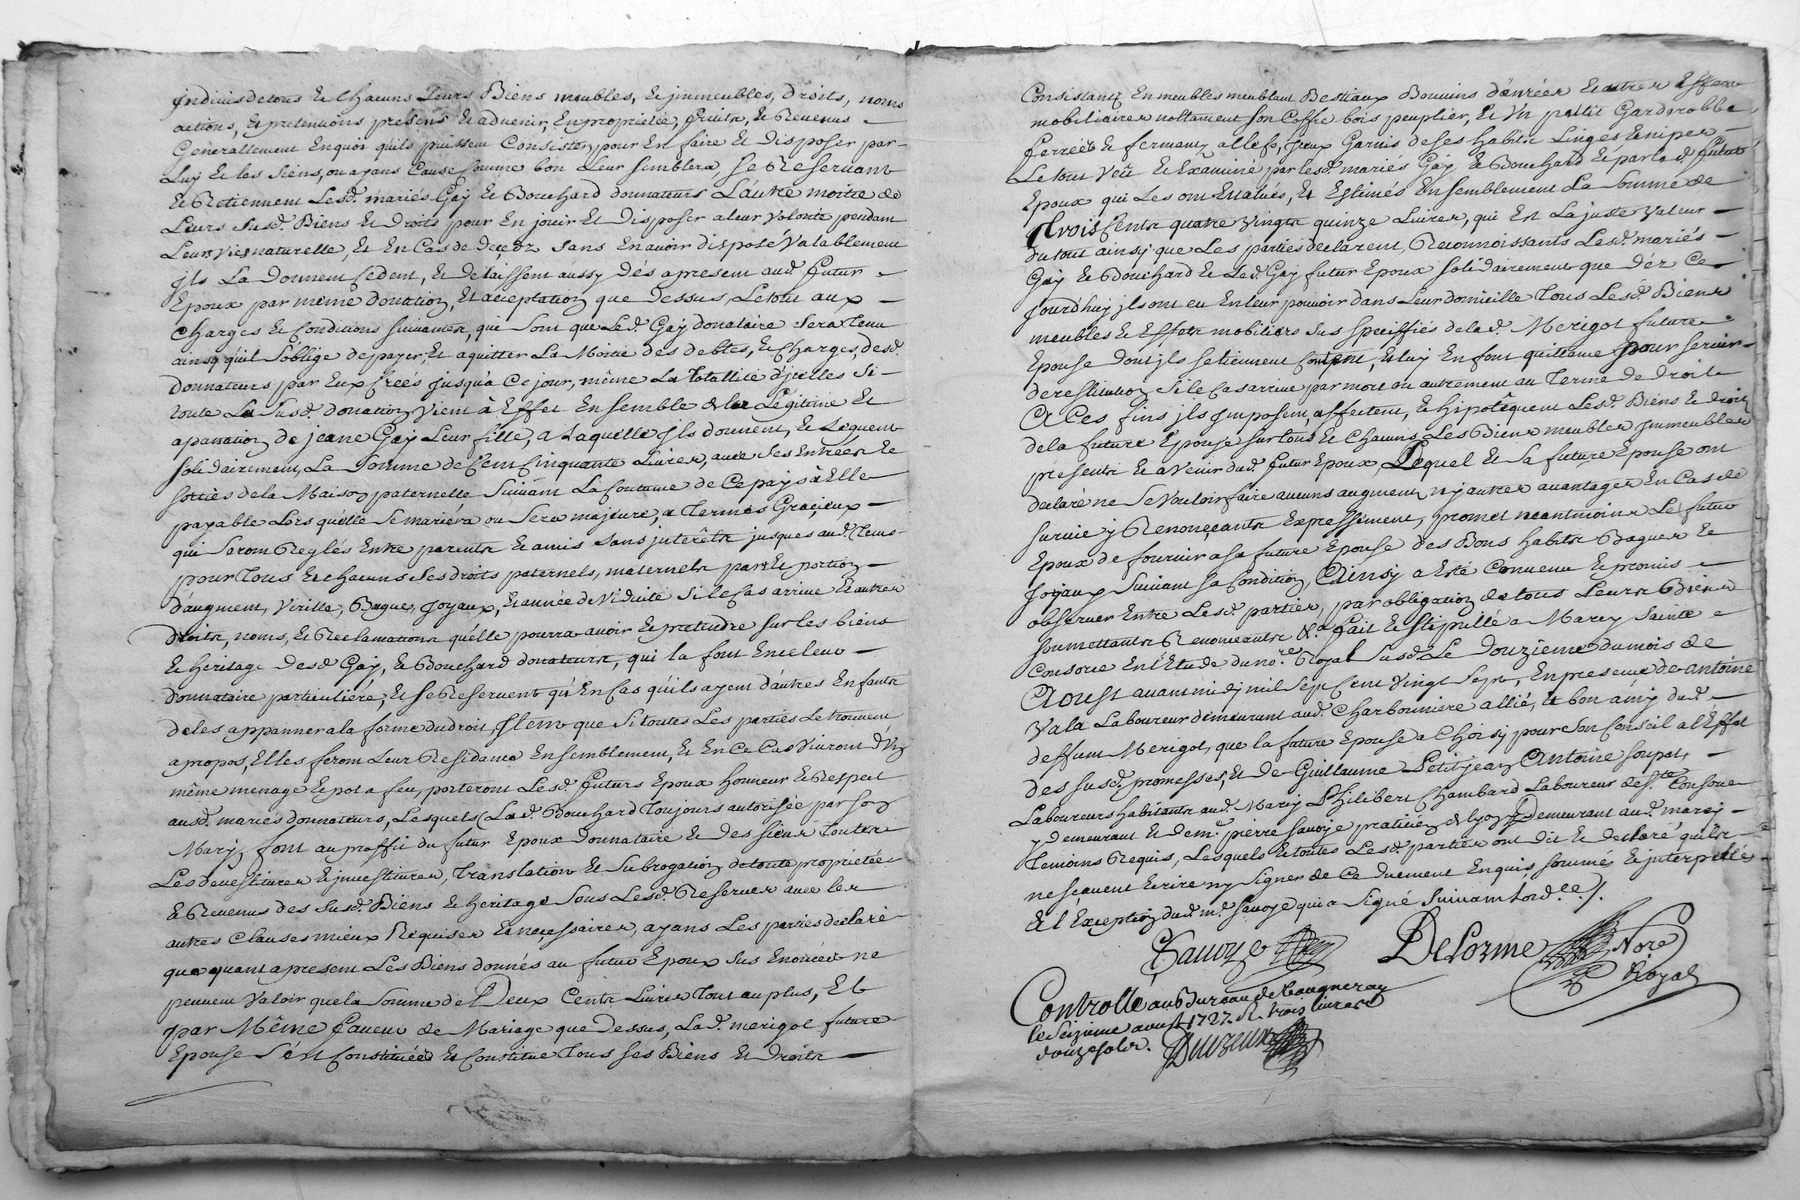 jndivis de tous Et Chacuns Leurs Biens meubles, Et jmmeubles, droits, noms
actions, Et pretentions presens Et advenir, En proprieté, fruits, Et Revenus
Generallement En quoy quils puissent Consister, pour En faire Et Disposer par
Luy Et les Siens, ou ayans Cause Comme bon Leur semblera, se Reservant
Et Retiennent Lesd. mariés Gay Et Bouchard donnateurs L'autre moitié de
Leurs susd. Biens Et Droits pour En jouir Et Disposer a leur Volonté pendant
Leurs Vies naturelle, Et En Cas de Deçedz sans En avoir disposé Valablement
jls La donnent Cedent, Et delaissent aussy dés apresent aud. futur
Epoux par même donation, Et acceptation que dessus, Le tout aux
Charges Et Conditions suivantes, que sont que Led. Gay donataire sera Tenu
ainsy quil s'oblige de payer, Et aquitter La Moitié des debtes, Et Charges, desd.
donnateurs par Eux Créés jusqu'a Ce jour, même La Totallité d'jcelles si
toute La susd. donation Vient à Effet Ensemble de la Légitime Et
apanation de jeane Gay Leur fille, a Laquelle jls donnent, Et Léguent
solidairement, La Somme de Cent Cinquante Livres, avec ses Entrées Et
sorties de la Maison paternelle suivant La Coutume de Ce pays à Elle
payable Lors quélle se mariera ou sera majeure, a Termes Gracieux
qui seront Reglés Entre parents Et amis sans jnterêts jusques aud. Tems
pour Tous Et chacuns ses droits paternels, maternels part Et portion
d'augment, Virille, Bagues, joyaux, Et année de Viduité si le Cas arrive Et autres
droits, noms, Et Reclamations quélle pourra avoir Et pretendre sur les biens
Et héritage desd. Gay, Et Bouchard donateurs, qui la font En ce leur
donnataire particuliere; Et se Reservent qu'En Cas qu'ils ayent d'autres Enfants
de les appanner a la forme du droit, jtem que si toutes Les parties Le trouvent
apropos, Elles feront Leur Residance Ensemblement, Et En Ce Cas Vivront d'Un
même menage Et pot a feu, porteront Lesd. futurs Epoux honneur Et Respect
ausd. mariés donnateurs, Lesquels (Lad. Bouchard Toujours autorisée par son
Mary) font au proffit du futur Epoux Donnataire Et des siens Toutes
Les devestitures Et jnvestitures, Translation Et subrogation de toute proprieté
Et Revenus des susd. Biens Et heritage sous Lesd. Reserves avec les
autres Clauses mieux Requises Et nécessaires, ayans Les parties declaré
que quant apresent Les Biens donnés au futur Epoux sus Enoncés ne
peuvent Valoir que la somme de Deux Cents Livres Tout au plus, Et
par Même faveur de Mariage que dessus, Lad. merigot future
Epouse s'est Constituée Et Constitue Tous ses Biens Et Droits
Consistantz En meubles meublant Bestiaux Bouvins danrées Et autres Effets
mobiliaires nottament son Coffre bois peuplier, Et Un petit Garderobbe
ferréé Et fermantz a Clefs, jceux Garnis de ses habits Linges
Le tout Veu Et Examiné par lesd. mariés Gay Et Bouchard Et par led. futur
Epoux qui Les ont Evalués, Et Estimés Ensemblement La somme de
Trois Cents quatre Vingts quinze Livres, qui Est La juste Valeur
du tout ainsy que Les parties declarent, Reconnoissants Lesd. mariés
Gay Et Bouchard Et Led. Gay futur Epoux solidairement que déz Ce
jourd'huy jls ont eu En leur pouvoir dans Leur domicille Tous Lesd. Biens
meubles Et Effets mobiliers sus speciffiés de lad. Merigot future
Epouse dont jls se tiennent Content, Et luy En font quittance pour servir
de restitution si le Cas arrive par mort ou autrement au Terme de Droit
A Ces fins jls jmposent, affectent, Et hipotêquent Lesd. Biens Et droits
de la future Epouse sur tous Et Chacuns Les Biens meubles jmmeubles
presents Et avenir dud. futur Epoux, Lequel Et sa future Epouse ont
declaré ne se Vouloir faire aucuns augment ny autres avantages En Cas de
survie y Renonçants Expressement, promet neantmoins Le futur
Epoux de fournir a sa future Epouse des Bons habits Bagues Et
joyaux suivant sa Condition, Ainsy a Esté Convenu Et promis
observer Entre Lesd. parties, par obligation de tous Leurs Biens
soumettants Renonceants &a. fait Et stipullé a Marcy sainte
Consorce En l'Etude du nore. Royal susd. Le Douzieme du mois de
Aoust avant midy mil sept Cent Vingt sept, En presence de antoine
Vala Laboureur demeurant aud. Charbonniere allié, Et bon amy dud.
deffunt Merigot, que la future Epouse a Choisy pour son Conseil a l'Effet
des susd. promesses, Et de Guillaume Petitjean Antoine forpat,
Laboureurs habitants aud. Marcy Philibert Chambard Laboureur de ste. Consorce
y demeurant Et dem. pierre savoye praticien de Lyon Demeurant aud. marcy
Temoins Requis, Lesquels Et toutes Lesd. parties ont dit Et declaré qu'ils
ne sçavent Ecrire ny signer de Ce Duement Enquis, sommés Et jnterpellés
Et l'Exception dud. m. savoye qui a signé suivant Lord.ce ./.
Savoye
Delorme Nore
Royal
Controllé au Bureau de Vaugneray
le seizieme aoust 1727. R. trois livres
douze sols.